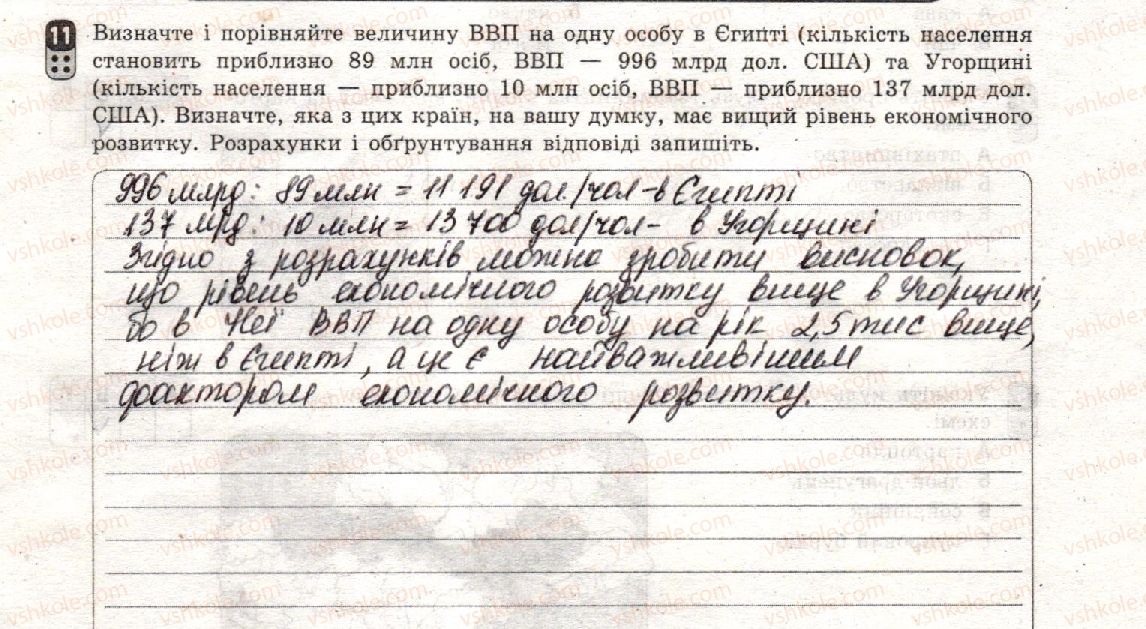 11 Визначте і порівняйте величину ВВП на одну особу в Єгипті (кількість населення
становить приблизно 89 млн осіб, ВВП — 996 млрд дол. США) та Угорщині
(кількість населення — приблизно 10 млн осіб, ВВП — приблизно 137 млрд дол.
США). Визначте, яка з цих країн, на вашу думку, має вищий рівень економічного
розвитку. Розрахунки і обґрунтування відповіді запишіть.
996 млрд : 89 млн = 11 191 дол/чол - в Єгипті
137 мрд : 10 млн = 13 700 дол/чол - в Угорщині
Згідно з розрахунків можна зробити висновок,
що рівень економічного розвитку вище в Угорщині,
бо в неї ВВП на одну особу на рік 2,5 тис вище,
ніж в Єгипті, а це є найважливішим
фактором економічного розвитку.